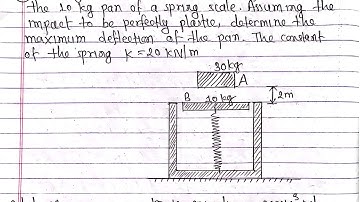 the 10 kg pan of a spring scale. Assuming the
impact to be perfectly plastic, determine the
maximum deflection of the pan. The constant
of the spring k = 20 kN/m
30kg
A
B 10kg
2m